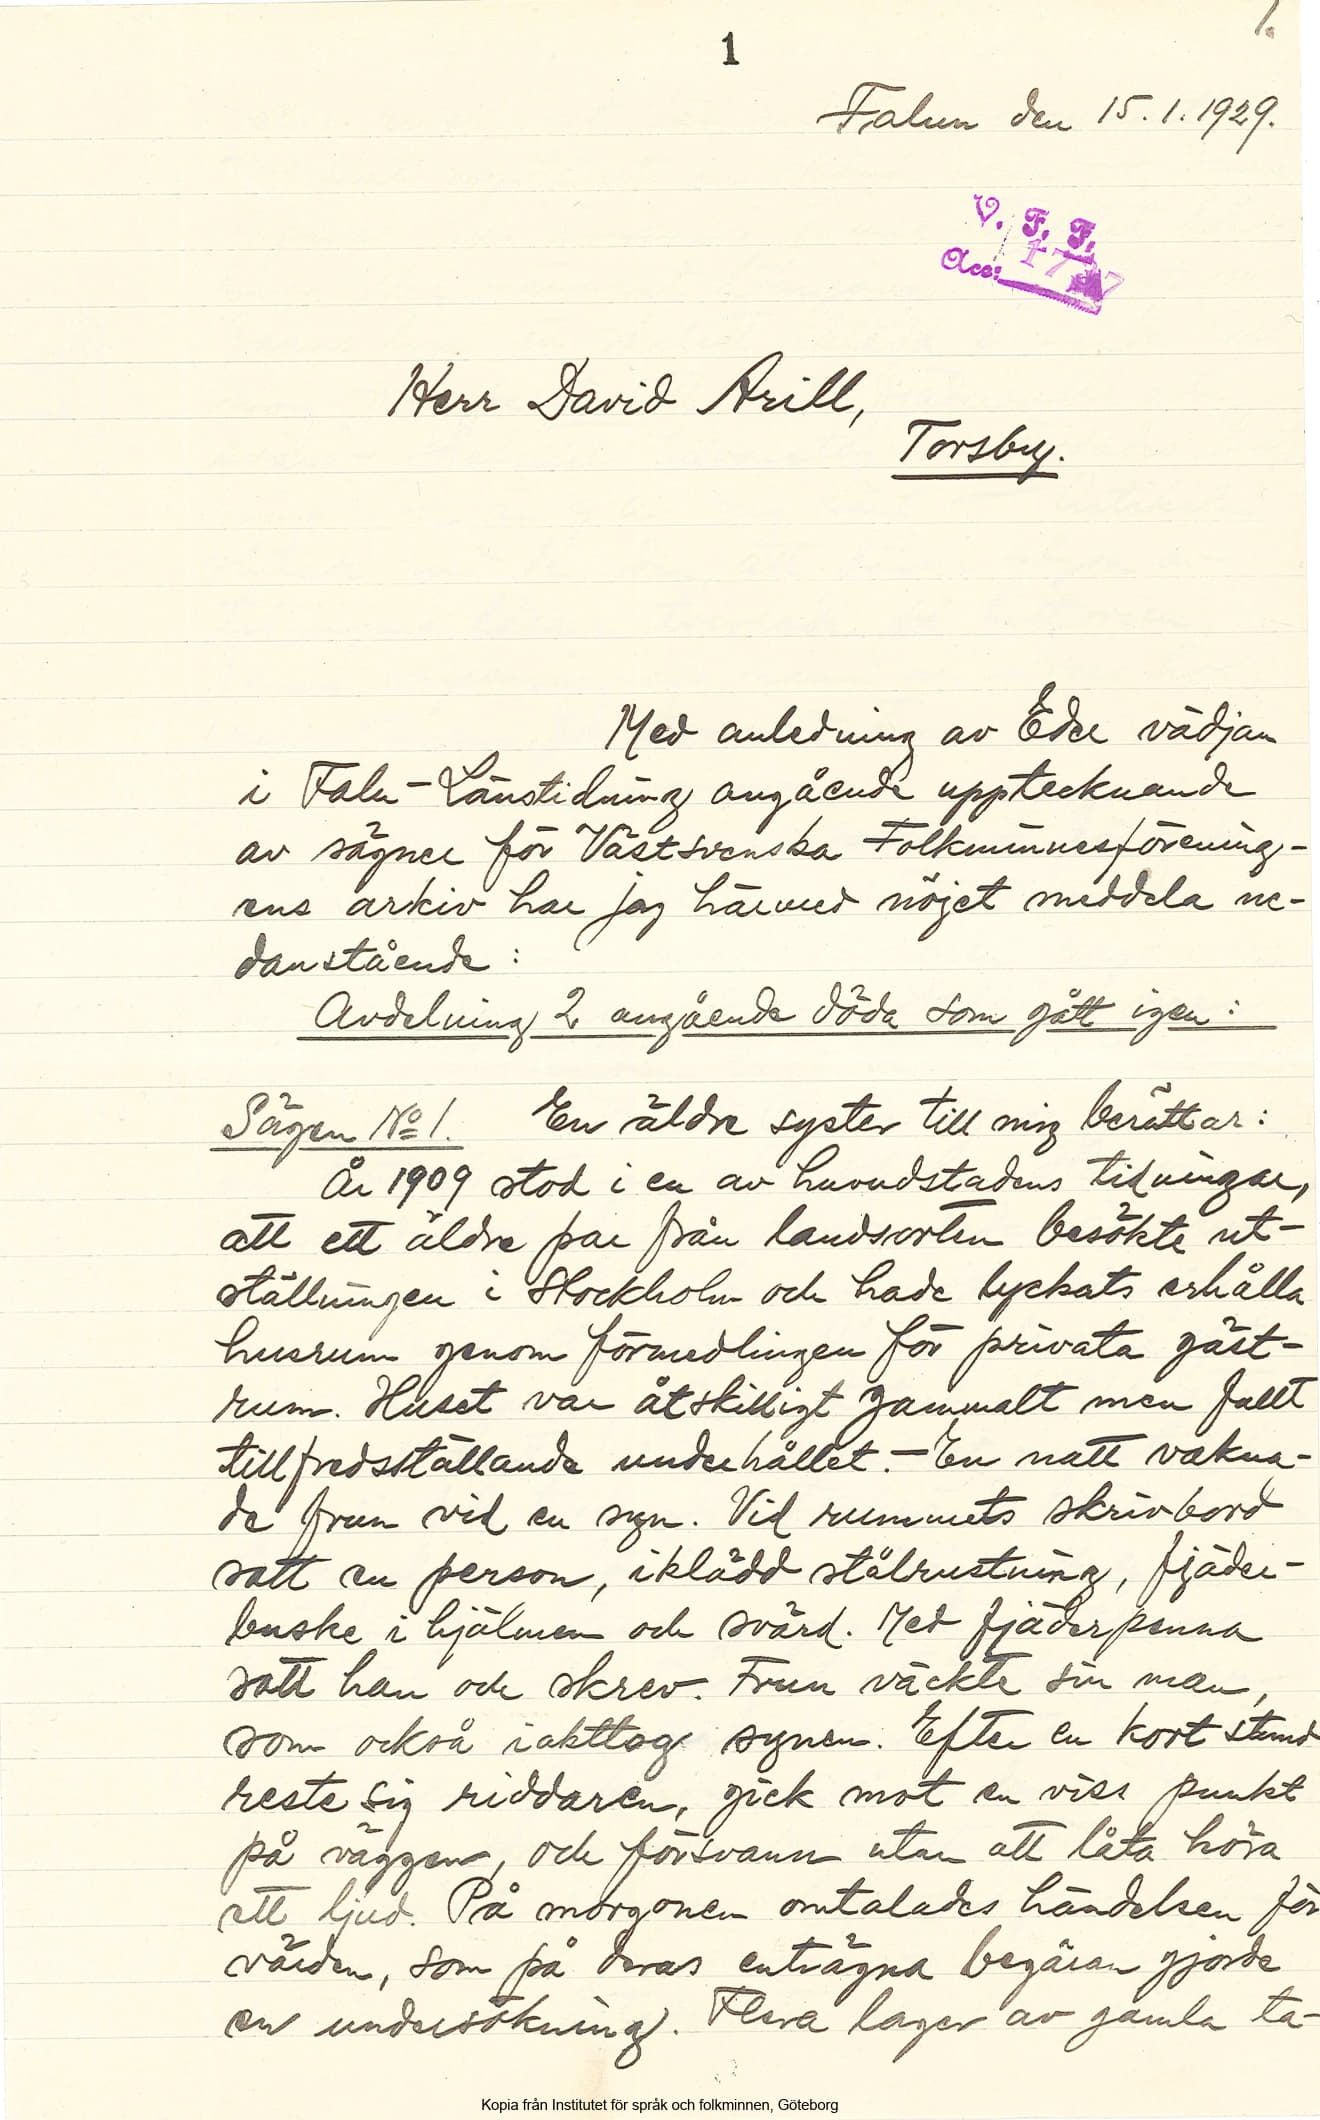 1.
1
Falun den 15.1.1929.
V. F. F.
Acc:
Herr David Arill,
Torsby.
Med anledning av Eder vädjan
i Falu-Länstidning angående upptecknande
av sägner för Västsvenska Folkminnesförening-
ens arkiv har jag härmed nöjet meddela ne-
danstående:
Avdelning 2 angående döda som gått igen:
Sägen No 1. En äldre syster till mig berättar:
År 1909 stod i en av huvudstadens tidningar,
att ett äldre par från landsorten besökte ut-
ställningen i Stockholm och hade lyckats erhålla
husrum genom förmedlingen för privata gäst-
rum. Huset var åtskilligt gammalt men fullt
tillfredsställande underhållet. - En natt vakna-
de frun vid en syn. Vid rummets skrivbord
satt en person, iklädd stålrustning, fjäder-
buske i hjälmen och svärd. Med fjäderpenna
satt han och skrev. Frun väckte sin man,
som också iakttog synen. Efter en kort stund
reste sig riddaren, gick mot en viss punkt
på väggen, och försvann utan att låta höra
ett ljud. På morgonen omtalades händelsen för
värden, som på deras enträgna begäran gjorde
en undersökning. Flera lager av gamla ta-
Kopia från Institutet för språk och folkminnen, Göteborg